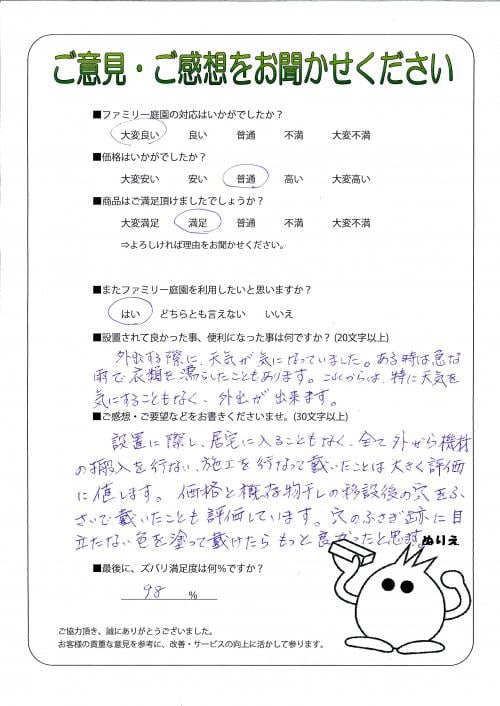 ご意見・ご感想をお聞かせください
■ファミリー庭園の対応はいかがでしたか？
大変良い 良い 普通 不満 大変不満
■価格はいかがでしたか？
大変安い 安い 普通 高い 大変高い
■商品はご満足頂けましたでしょうか？
大変満足 満足 普通 不満 大変不満
⇒よろしければ理由をお聞かせください。
■またファミリー庭園を利用したいと思いますか？
はい どちらとも言えない いいえ
■設置されて良かった事、便利になった事は何ですか？(20文字以上)
外出する際に、天気が気になっていました。ある時は急な
雨で衣類を濡らしたこともあります。これからは、特に天気を
気にすることもなく、外出が出来ます。
■ご感想・ご要望などをお書きくださいませ。(30文字以上)
設置に際し、居宅に入ることもなく、全て外から機材
の搬入を行ない、施工を行なって戴いたことは大きく評価
に値します。価格と既存物干しの移設後の穴をふ
さいで戴いたことも評価しています。穴のふさぎ跡に目
立たない色を塗って戴けたらもっと良かったと思います。
ぬりえ
■最後に、ズバリ満足度は何％ですか？
98 ％
ご協力頂き、誠にありがとうございました。
お客様の貴重な意見を参考に、改善・サービスの向上に活かして参ります。